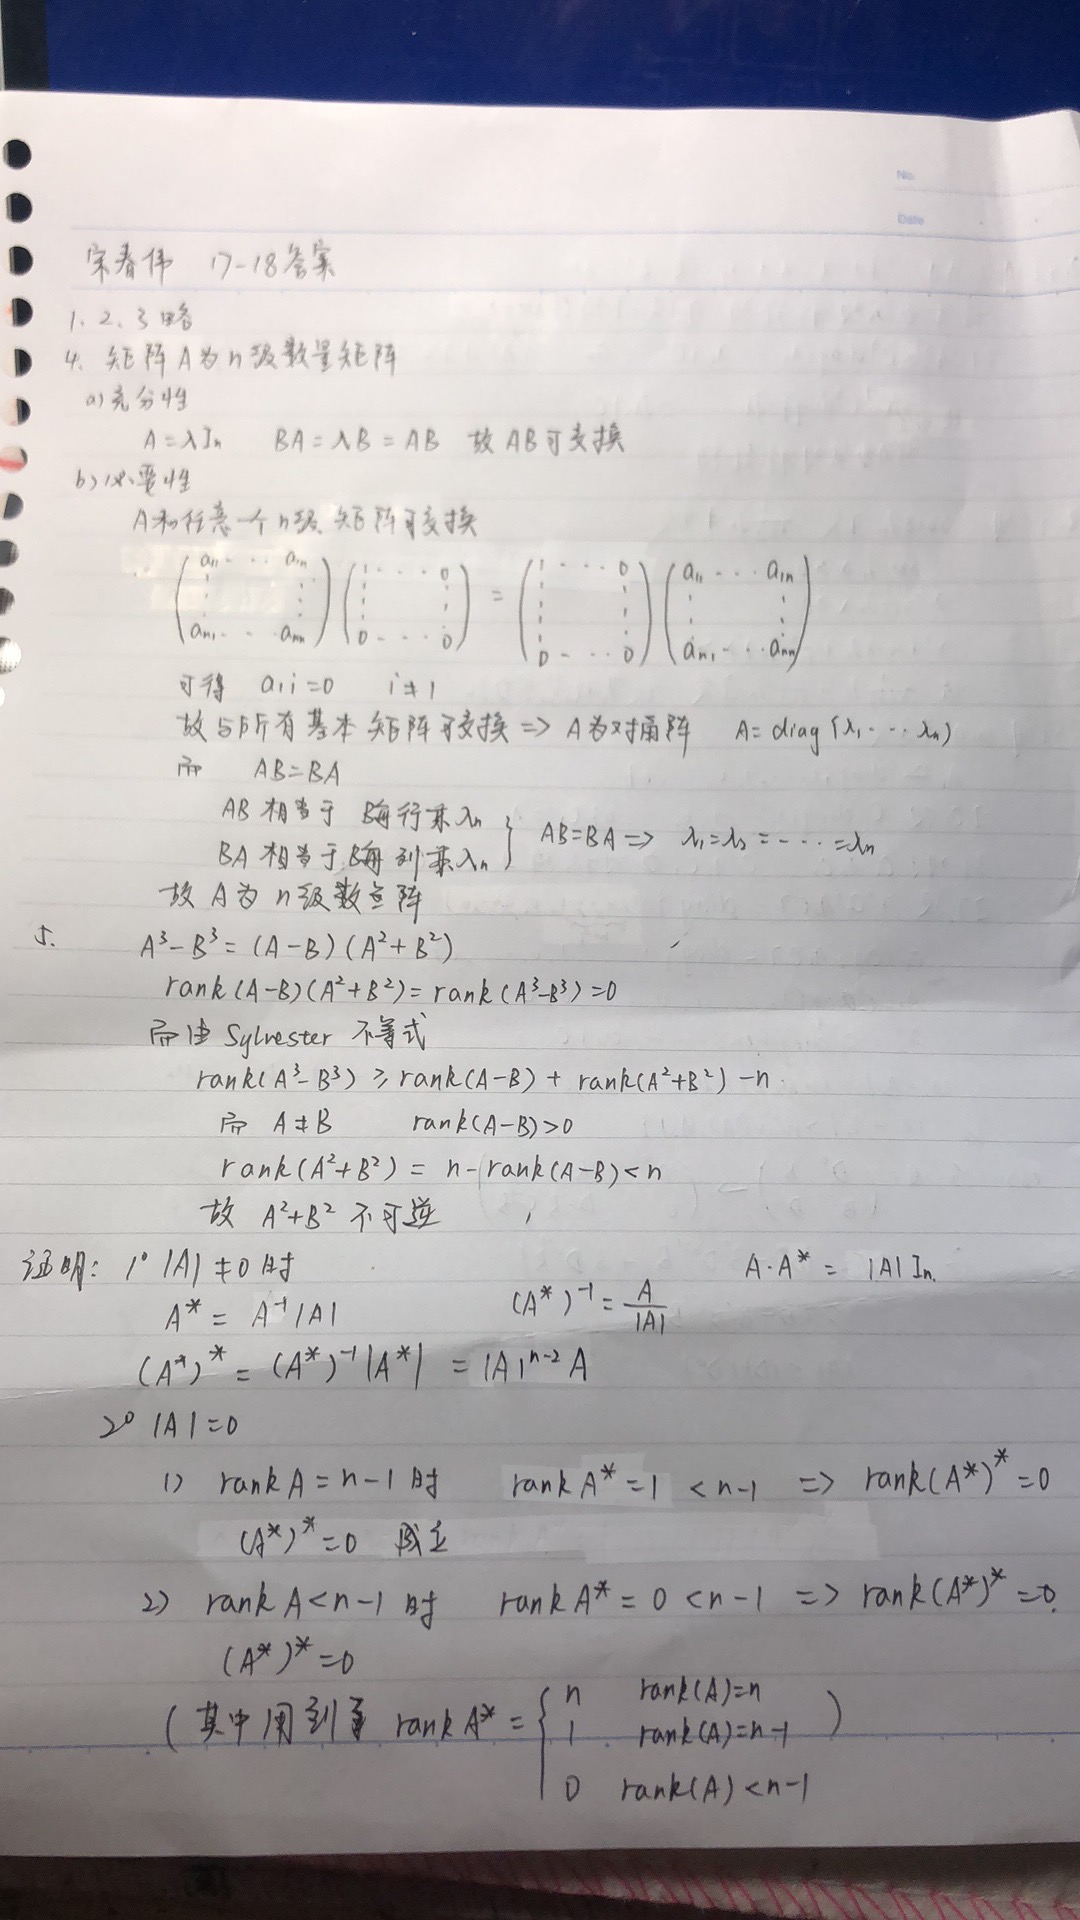 No.
Date
宋春伟 17-18答案
1、2、3 略
4. 矩阵A为n级数量矩阵
a) 充分性
A=λIn BA=λB=AB 故AB可交换
b) 必要性
A和任意一个n级矩阵可交换
(a11 ··· a1n ⋮ ⋮ an1 ··· ann) (1 ··· 0 ⋮ ⋮ 0 ··· 0) = (1 ··· 0 ⋮ ⋮ 0 ··· 0) (a11 ··· a1n ⋮ ⋮ an1 ··· ann)
可得 a1i=0 i≠1
故与所有基本矩阵可交换 => A为对角阵 A=diag(λ1···λn)
而 AB=BA
AB相当于B每行乘λn
BA相当于B每列乘λn } AB=BA => λ1=λ2=····=λn
故A为n级数量阵
5. A³-B³=(A-B)(A²+B²)
rank(A-B)(A²+B²)=rank(A³-B³)=0
而由Sylvester不等式
rank(A³-B³)≥rank(A-B)+rank(A²+B²)-n
而A≠B rank(A-B)>0
rank(A²+B²)=n-rank(A-B)<n
故A²+B²不可逆
证明: 1° |A|≠0时 A·A*=|A|In.
A*=A⁻¹|A| (A*)⁻¹=A/|A|
(A*)*=(A*)⁻¹|A*|=|A|ⁿ⁻²A
2° |A|=0
1) rankA=n-1时 rankA*=1<n-1 => rank(A*)*=0
(A*)*=0 成立
2) rankA<n-1时 rankA*=0<n-1 => rank(A*)*=0.
(A*)*=0
(其中用到了 rankA*={n rank(A)=n
1 rank(A)=n-1)
0 rank(A)<n-1